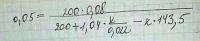 0,05 = 200·0,08 / 200+1,04·x/0,022 − x·143,5